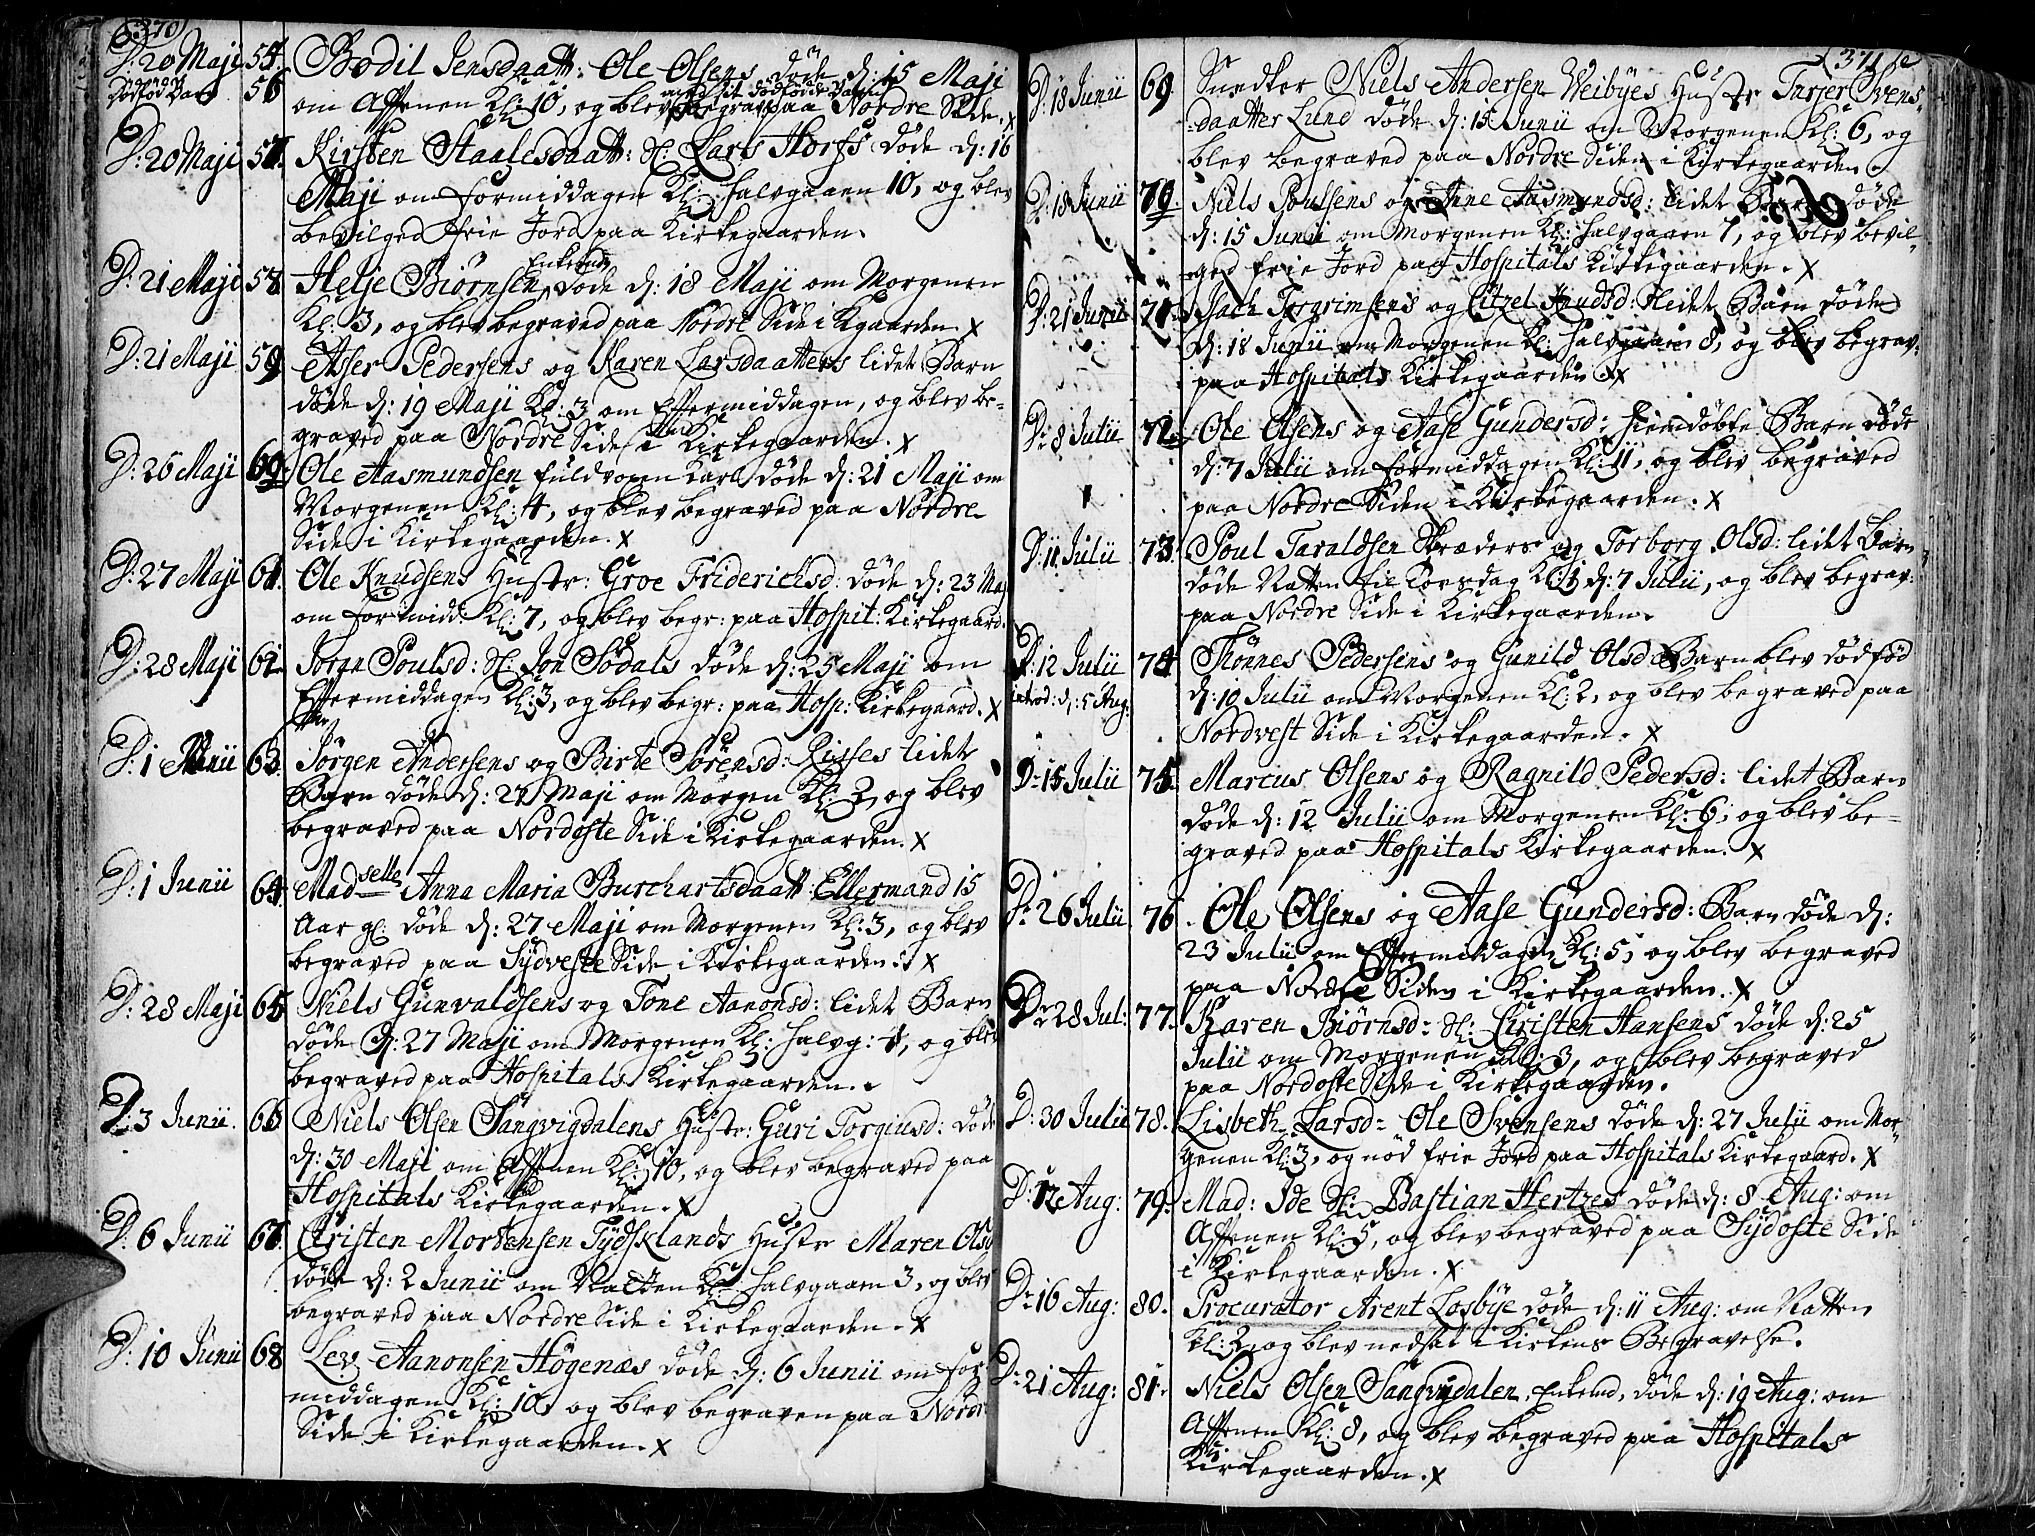 370
D: 20 Maji 55. Bodil Jensdaatt: Ole Olsens døde d: 15 Maji
Dødfød Barn 56 om Aftenen Kl: 10, og blev med sit dødfødde Barn begrav: paa Nordre Side. x
D: 20 Maji 57. Kirsten Staalesdaatt: Sl: Lars Horfs døde d: 16
Maji om formiddagen Kl: halvgaaen 10, og blev
bevilged frie Jord paa Kirkegaarden.
D: 21 Maji 58 Helje Biørnsen Enkemd døde d: 18 Maji om Morgenen
Kl: 3, og blev begraved paa Nordre Side i Kgaarden. x
D: 21 Maji 59 Asser Pedersens og Karen Larsdaatters lidet Barn
døde d: 19 Maji Kl: 3 om Eftermiddagen, og blev be-
graved paa Nordre Side i Kirkegaarden. x
D: 26 Maji 60. Ole Aasmundsen fuldvoxen Karl døde d: 21 Maji om
Morgenen Kl: 4, og blev begraved paa Nordre
Side i Kirkegaarden. x
D: 27 Maji 61. Ole Knudsens Hustr: Groe Friderichsd: døde d: 23 Maj
om formidd: Kl: 7, og blev begr: paa Hospit: Kirkegaard.
D: 28 Maji 62. Joran Poulsd: Sl: Jon Sødals døde d: 25 Maji om
Eftermiddagen Kl: 3, og blev begr: paa Hosp: Kirkegaard. x
D: 1 Junii 63. Jørgen Andersens og Birte Sørensd: Risses lidet
Barn døde d: 27 Maji om Morgen Kl: 2, og blev
begraved paa Nordoste Side i Kirkegaarden. x
D: 1 Junii 64. Madselle Anna Maria Burchartsdaatt: Ellermand 15
Aar gl: døde d: 27 Maji om Morgenen Kl: 3, og blev
begraved paa Sydveste Side i Kirkegaarden. x
D: 28 Maji 65 Niels Gunvaldsens og Tone Aanonsd: lidet Barn
døde d: 27 Maji om Morgenen Kl: halvg: 4, og blev
begraved paa Hospitals Kirkegaarden.
D: 3 Junii. 66 Niels Olsen Sangvigdalens Hustr: Guri Torgiusd: døde
d: 30 Maji om Aftenen Kl: 10, og blev begraved paa
Hospitals Kirkegaarden. x
D: 6 Junii 67. Christen Mortensen Tydsklands Hustr Maren Olsd
døde d: 2 Junii om Natten Kl: halvgaaen 3, og blev
begraved paa Nordre Side i Kirkegaarden. x
D: 10 Junii 68 Lev Aanonsen Høgenæs døde d: 6 Junii om for
middagen Kl: 10, og blev begraven paa Nordre
Side i Kirkegaarden. x
371
D: 18 Junii 69 Snedker Niels Andersen Weibyes Hustr Turjer Svens-
daatter Lund døde d: 15 Junii om Morgenen Kl: 6, og
blev begraved paa Nordre Siden i Kirkegaarden.
D: 18 Junii 70. Niels Poulsens og Anne Aasmundsd: lidet Barn døde
d: 15 Junii om Morgenen Kl: halvgaaen 7, og blev bevil-
ged frie Jord paa Hospitals Kirkegaarden. x
D: 21 Junii 71. Isach Torgrimsens og Sitzel Knudsd: lidet Barn døde
d: 18 Junii om Morgenen Kl: halvgaaen 8, og blev begrav:
paa Hospitals Kirkegaarden. x
D: 8 Julii 72. Ole Olsens og Aase Gundersd: hiemdøbte Barn døde
d: 7 Julii om formiddagen Kl: 11, og blev begraved
paa Nordre Siden i Kirkegaarden. x
D: 11 Julii 73. Poul Taraldsen Skræders og Torborg Olsd: lidet Barn
døde Natten til Torsdag Kl: 1 d: 7 Julii, og blev begrav:
paa Nordre Side i Kirkegaarden.
D: 12 Julii 74 Tønnes Pedersens og Gunild Olsd Barn blev dødfød
d: 5 Aug: d: 10 Julii om Morgenen Kl: 2, og blev begraved paa
Nordvest Side i Kirkegaarden. x
D: 15 Julii 75. Marcus Olsens og Ragnild Pedersd: lidet Barn
døde d: 12 Julii om Morgenen Kl: 6, og blev be-
graved paa Hospitals Kirkegaarden. x
D: 26 Julii 76. Ole Olsens og Aase Gundersd: Barn døde d:
23 Julii om Eftermiddagen Kl: 5, og blev begraved
paa Nordre Siden i Kirkegaarden. x
D: 28 Jul: 77. Karen Biørnsd: Sl: Christen Hansens døde d: 25
Julii om Morgenen Kl: 3, og blev begraved
paa Nordoste Side i Kirkegaarden.
D: 30 Julii 78. Lisbeth Larsd: Ole Svensens døde d: 27 Julii om Mor-
genen Kl: 3, og nød frie Jord paa Hospitals Kirkegaard. x
D: 12 Aug: 79. Mad: Ide Sl: Bastian Hertzes døde d: 8 Aug: om
Aftenen Kl: 5, og blev begraved paa Sydoste Side
i Kirkegaarden. x
D: 16 Aug: 80. Procurator Arent Losbye døde d: 11 Aug: om Natten
Kl: 2, og blev nedsat i Kirkens Begravelse.
D: 21 Aug: 81. Niels Olsen Sangvigdalen, Enkemd, døde d: 19 Aug: om
Aftenen Kl: 8, og blev begraved paa Hospitals
Kirkegaarden. x